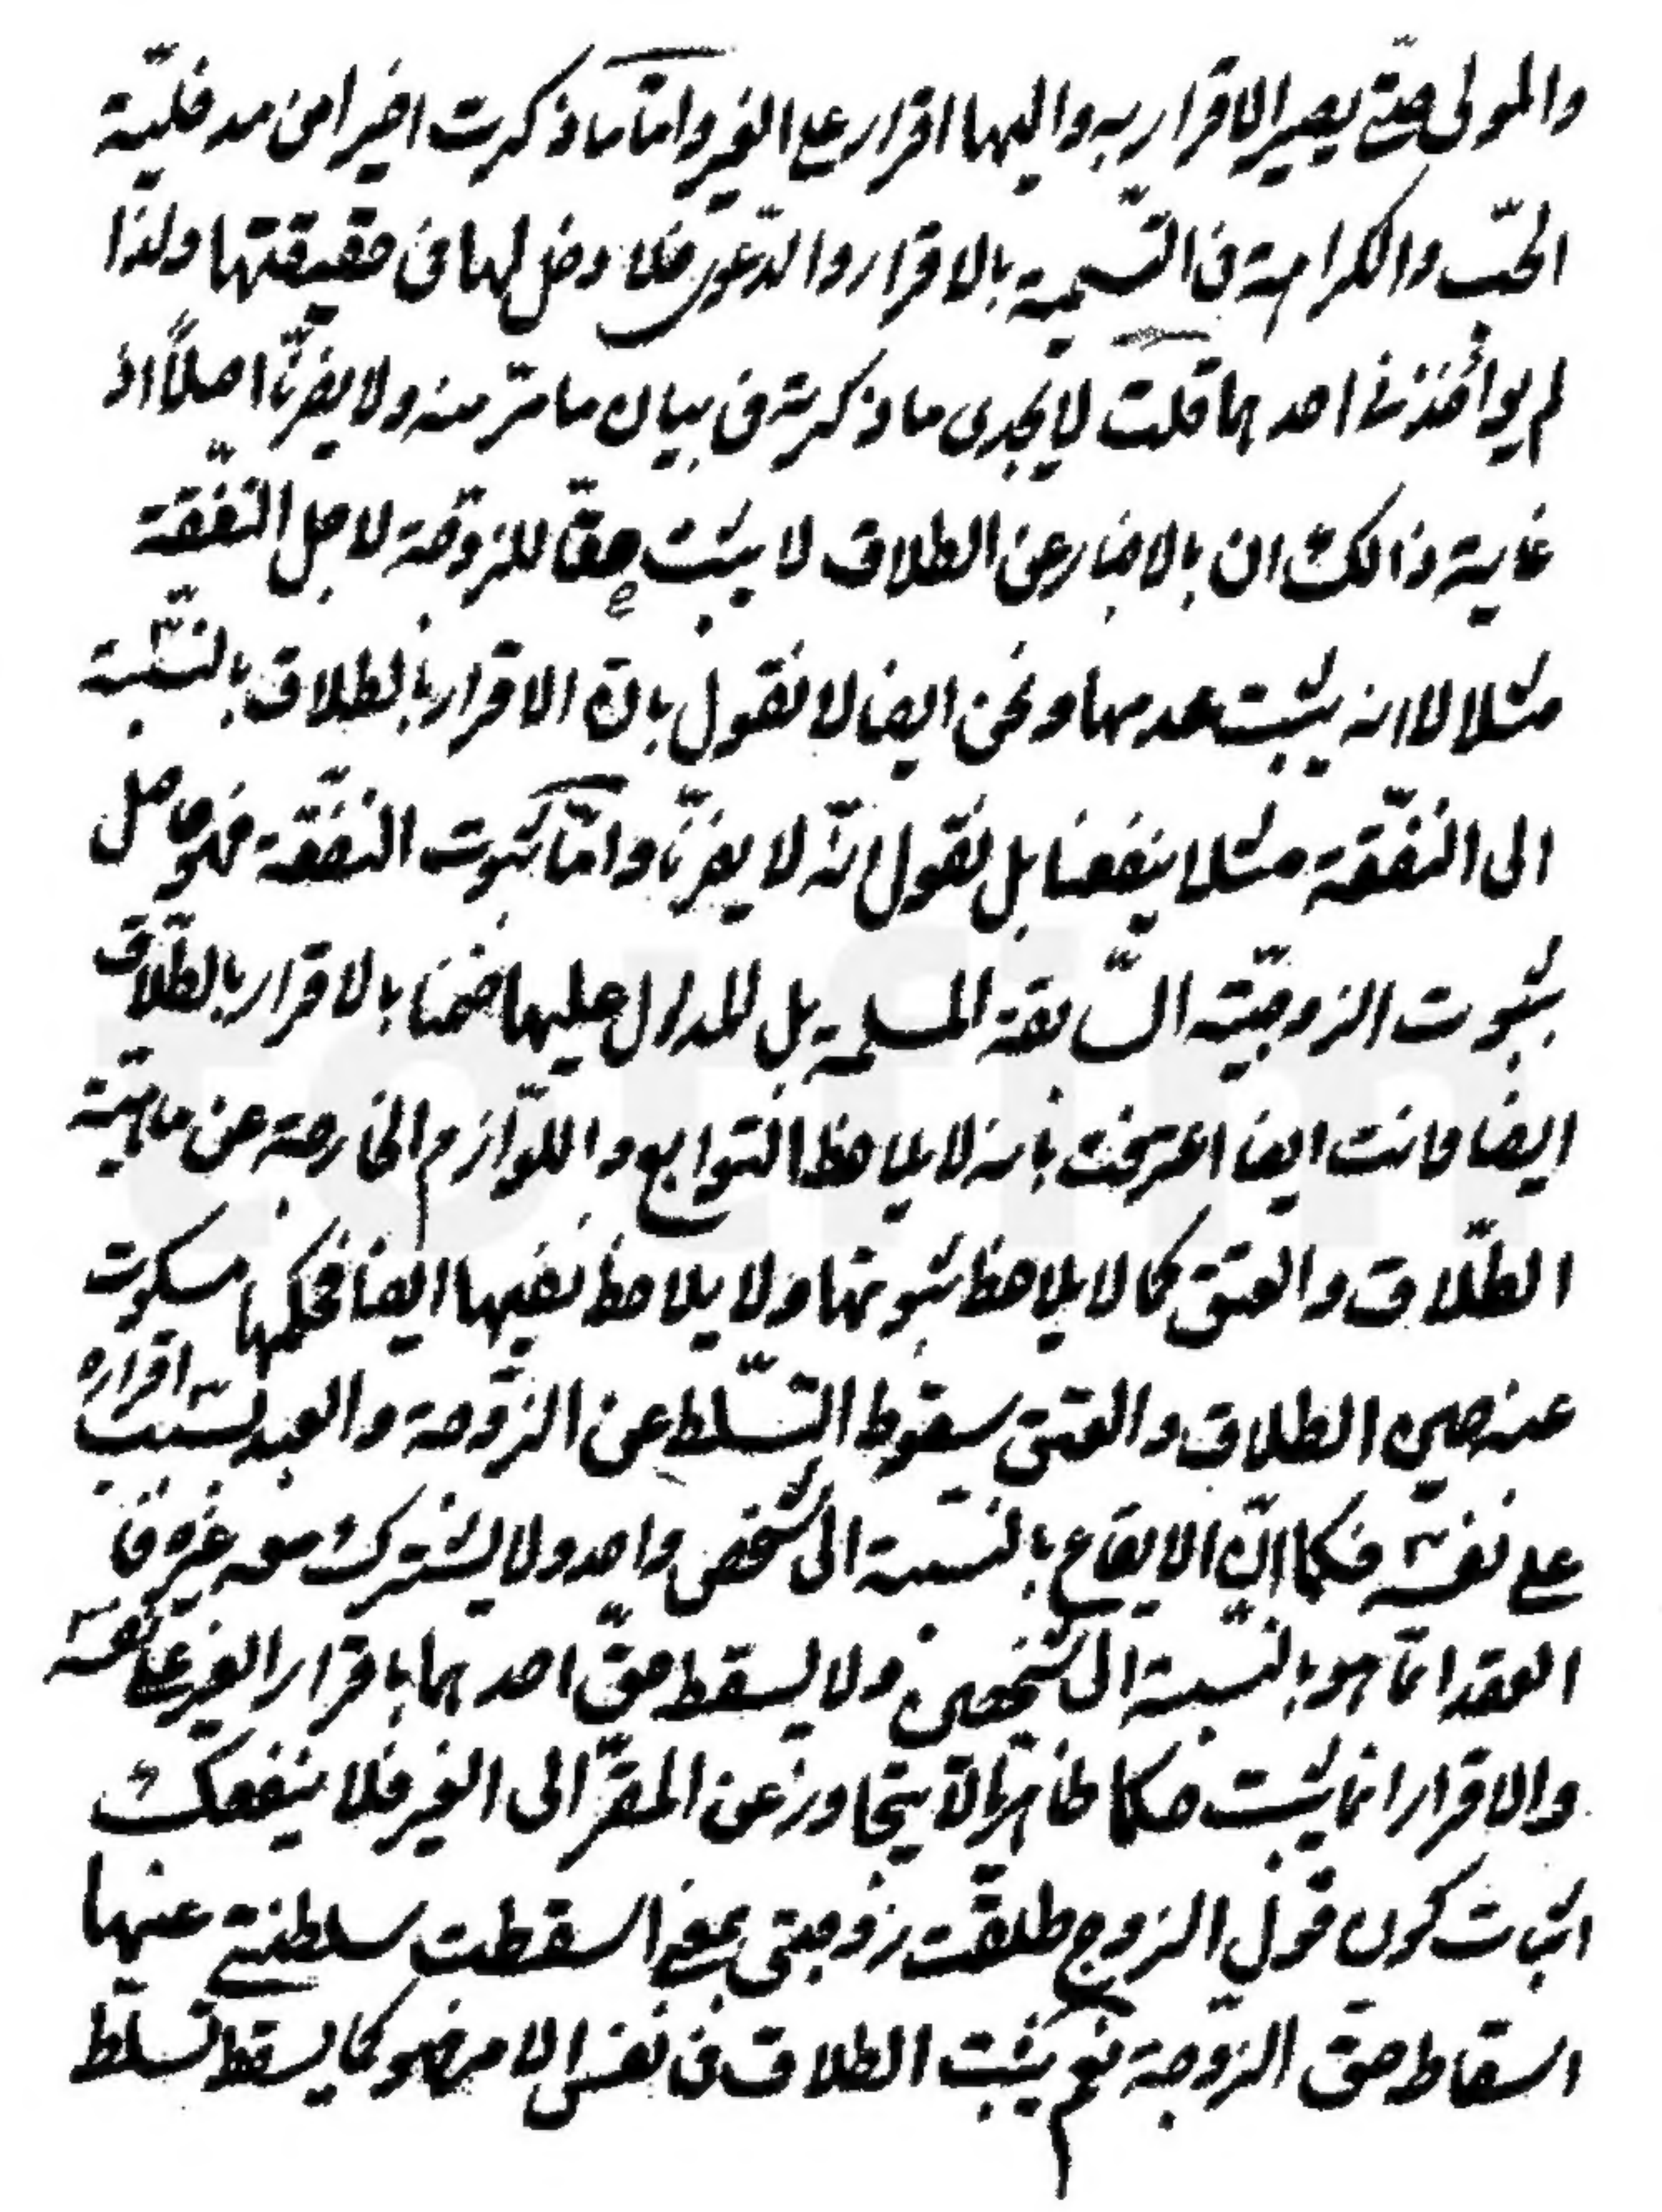 والمولى حتّى يصير الاقرار به واليهما اقرار على الغير وامّا ما ذكرت اخيرا من مدخليّة
الحبّ والكراهة فى التّسمية بالاقرار والدّعوى فلا دخل لها فى حقيقتها ولذا
لم يوأخذنا احدهما قلت لا يجدى ما ذكرته فى بيان ما مرّ منه ولا يضرّنا اصلاً اذ
غاية ذالك ان بالاخبار عن الطلاق لا يثبت حقا للزّوجة لاجل النّفقة
مثلا لا انه يثبت عدمها ونحن ايضا لا نقول بانّ الاقرار بالطلاق بالنّسبة
الى النّفقة مثلا ينفعنا بل نقول انّه لا يضرّنا وامّا ثبوت النفقة فهو حاصل
بثبوت الزوجيّة السّابقة المسلمة بل المدلول عليها ضمنا بالاقرار بالطّلاق
ايضا وانت ايضا اعترفت بانه لا يلاحظ التوابع واللّوازم الخارجة عن ماهيّة
الطّلاق والعتق كما لا يلاحظ ثبوتها ولا يلاحظ نفيها ايضا فحكمها مسكوت
عنه حين الطلاق والعتق سقوط التّسلّط عن الزّوجة والعبد بسبب اقراره
على نفسه فكما انّ الايقاع بالنسبة الى شخص واحد ولا يشترك معه غيره فا
العقد انّما هو بالنّسبة الى شخصين ولا يسقط حقّ احدهما باقرار الغير على نفسه
والاقرار انما يثبت حكما ظاهريّا لا يتجاوز عن المقرّ الى الغير فلا ينفعك
اثبات كون قول الزوج طلقت زوجتى بمعنى اسقطت سلطنتى عنها
اسقاط حق الزّوجة نعم يثبت الطلاق فى نفس الامر فهو كما يسقط تسلّط